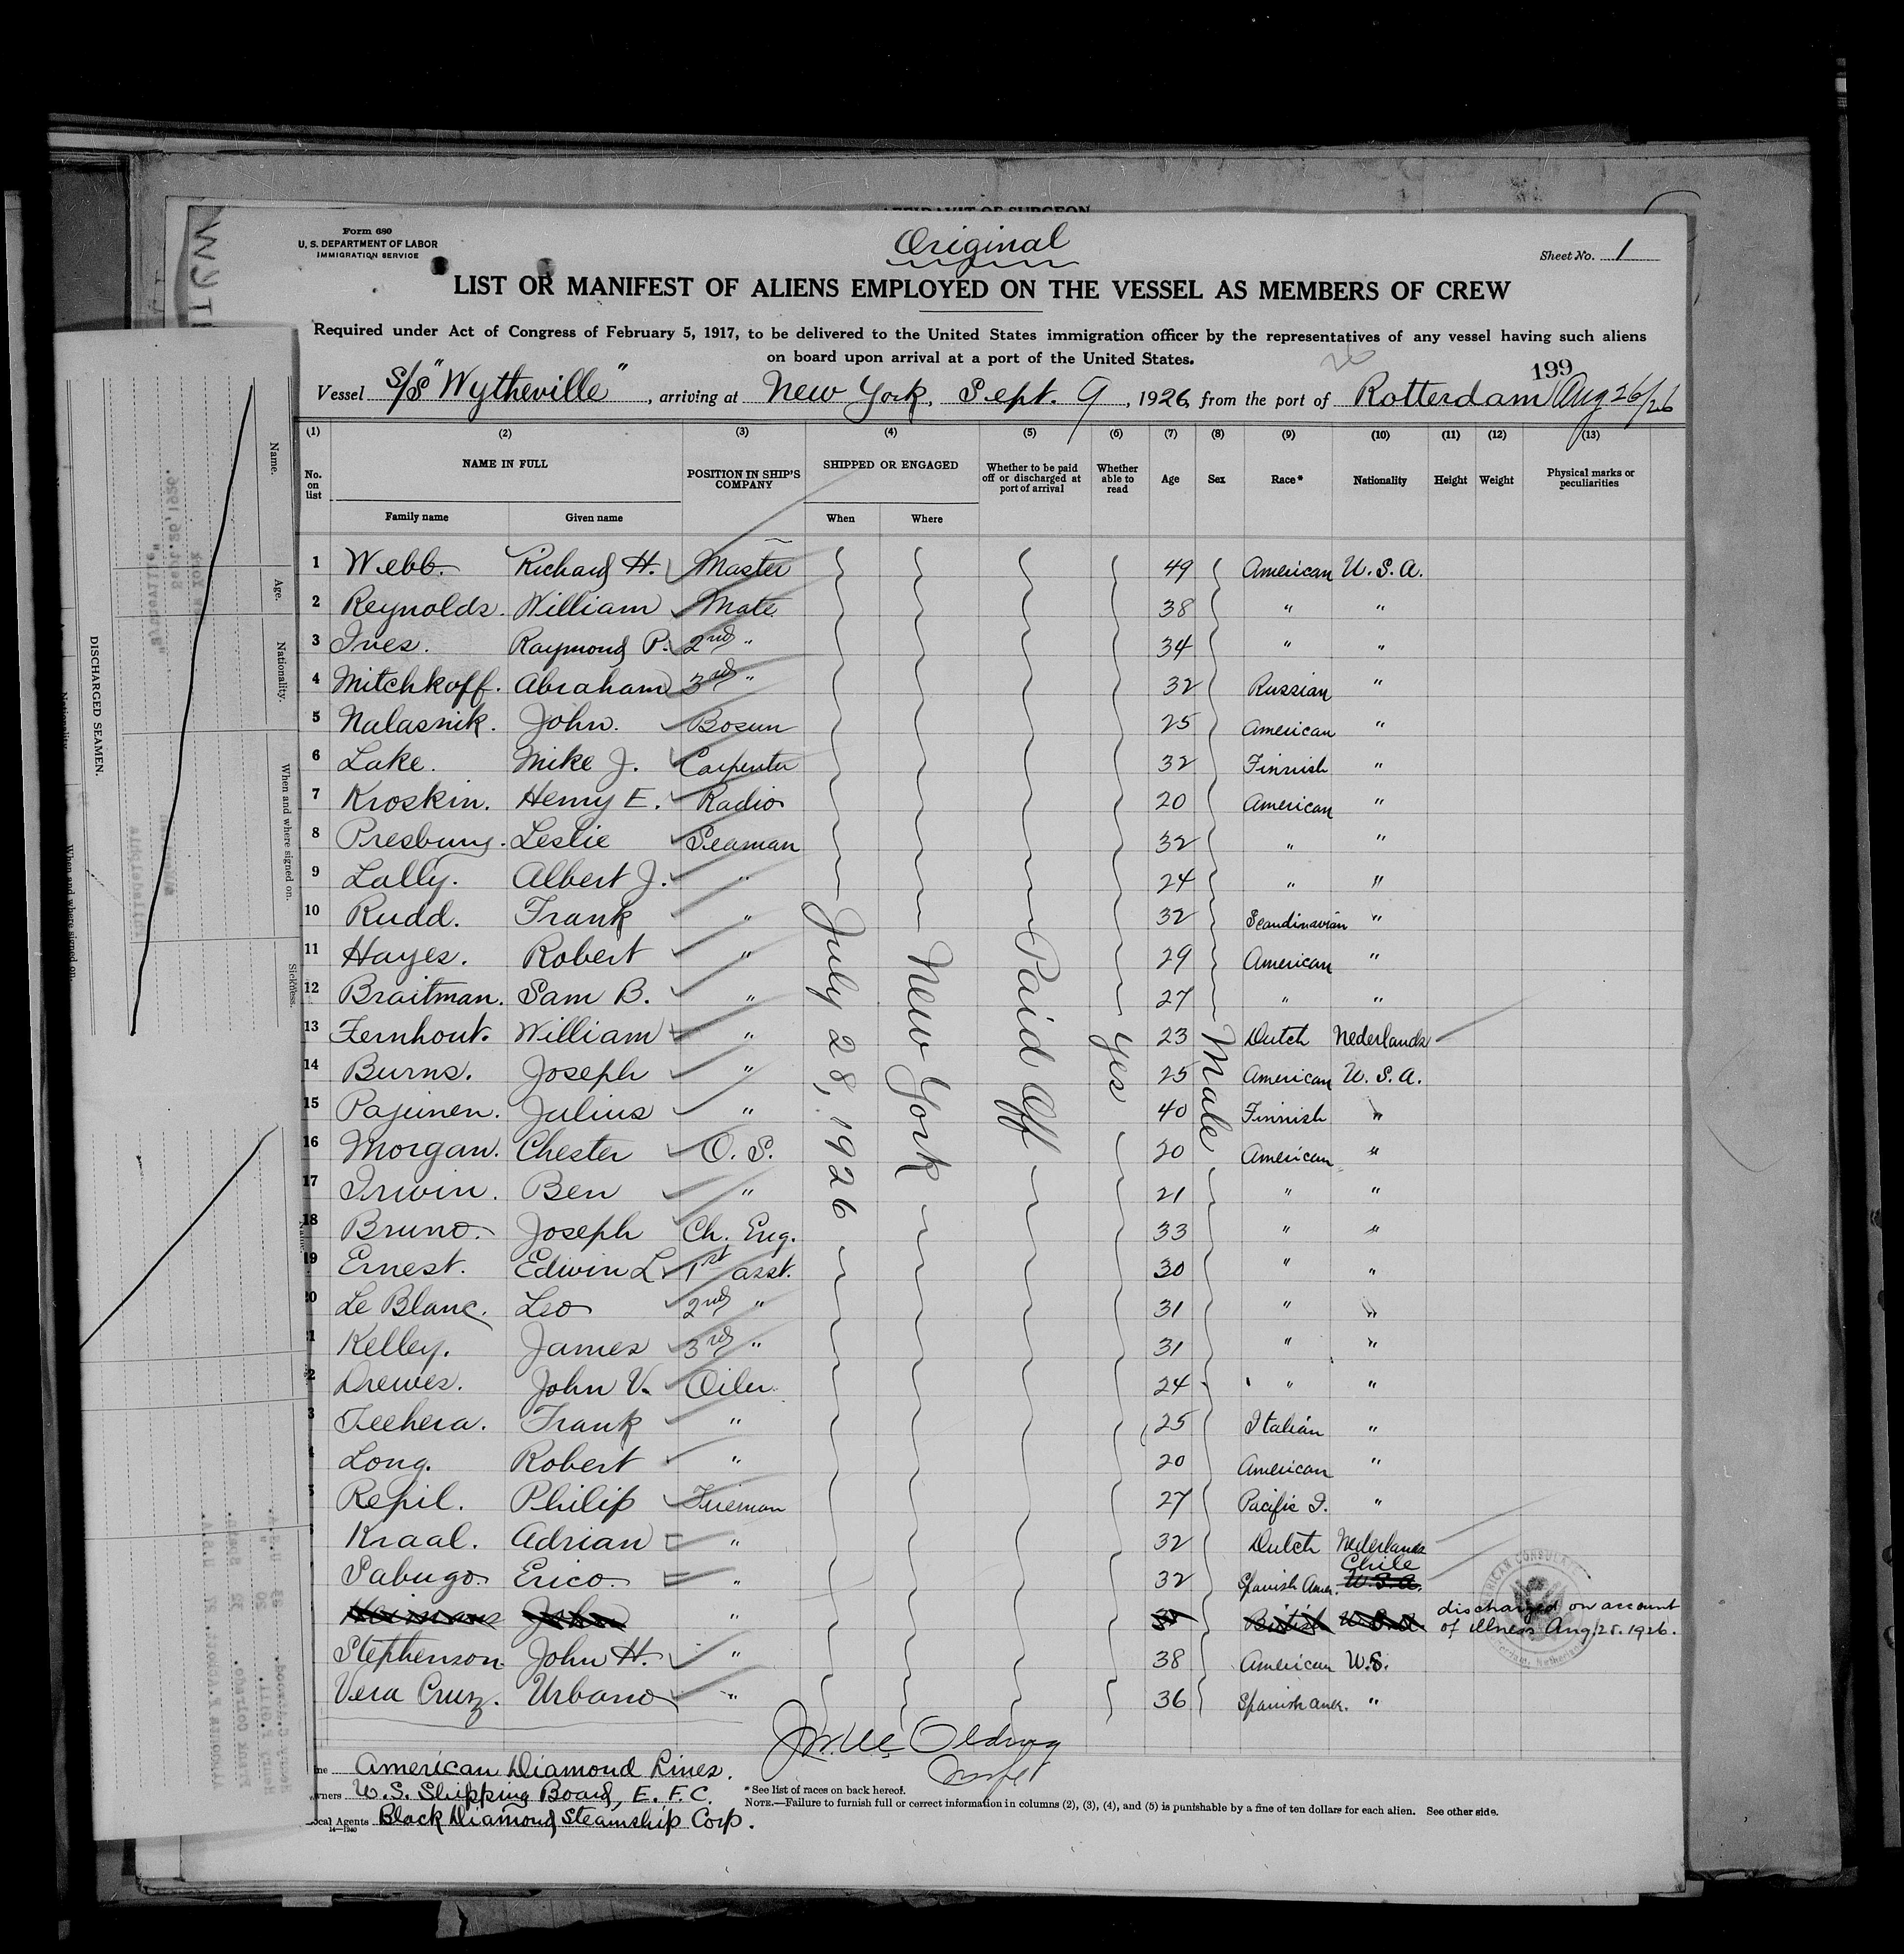 AFFIDAVIT OF SURGEON
Form 680
U. S. DEPARTMENT OF LABOR
IMMIGRATION SERVICE
Original
Sheet No. 1
LIST OR MANIFEST OF ALIENS EMPLOYED ON THE VESSEL AS MEMBERS OF CREW
Required under Act of Congress of February 5, 1917, to be delivered to the United States immigration officer by the representatives of any vessel having such aliens
on board upon arrival at a port of the United States.
199
Vessel S/S "Wytheville", arriving at New York, Sept. 9, 1926, from the port of Rotterdam Aug 26/26
(1) (2) (3) (4) (5) (6) (7) (8) (9) (10) (11) (12) (13)
No. on list NAME IN FULL POSITION IN SHIP'S COMPANY SHIPPED OR ENGAGED Whether to be paid off or discharged at port of arrival Whether able to read Age Sex Race* Nationality Height Weight Physical marks or peculiarities
Family name Given name When Where
1 Webb. Richard H. Master 49 American U.S.A.
2 Reynolds. William Mate 38 " "
3 Ives. Raymond P. 2nd " 34 " "
4 Mitchkoff. Abraham 3rd " 32 Russian "
5 Nalasnik. John. Bosun 25 American "
6 Lake. Mike J. Carpenter 32 Finnish "
7 Kroskin. Henry E. Radio 20 American "
8 Presburg. Leslie Seaman 32 " "
9 Lally. Albert J. " 24 " "
10 Rudd. Frank " 32 Scandinavian "
11 Hayes. Robert " 29 American "
12 Braitman. Sam B. " 27 " "
13 Fernhout. William " 23 Dutch Nederlands
14 Burns. Joseph " 25 American U.S.A.
15 Pajunen. Julius " 40 Finnish "
16 Morgan. Chester O.S. 20 American "
17 Irwin. Ben " 21 " "
18 Bruno. Joseph Ch. Eng. 33 " "
19 Ernest. Edwin L. 1st asst. 30 " "
20 Le Blanc. Leo 2nd " 31 " "
1 Kelley. James 3rd " 31 " "
2 Drewes. John V. Oiler 24 " "
3 Techera. Frank " 25 Italian "
Long. Robert " 20 American "
Repil. Philip Fireman 27 Pacific I. "
Kraal. Adrian " 32 Dutch Nederlands
Sabugo. Erico. " 32 Spanish Amer. Chile U.S.A.
John " British U.S.A. discharged on account
of illness Aug. 25. 1926.
Stephenson John H. " 38 American U.S.
Vera Cruz. Urbano " 36 Spanish Amer. "
July 28, 1926
New York
Paid Off
Yes
Male
AMERICAN CONSULATE
American Diamond Lines.
U.S. Shipping Board, E.F.C.
Local Agents Black Diamond Steamship Corp.
14—1940
*See list of races on back hereof.
NOTE.—Failure to furnish full or correct information in columns (2), (3), (4), and (5) is punishable by a fine of ten dollars for each alien. See other side.
DISCHARGED SEAMEN.
Name.
Age.
Nationality.
When and where signed on.
Sickness.
Nationality.
When and where signed on.